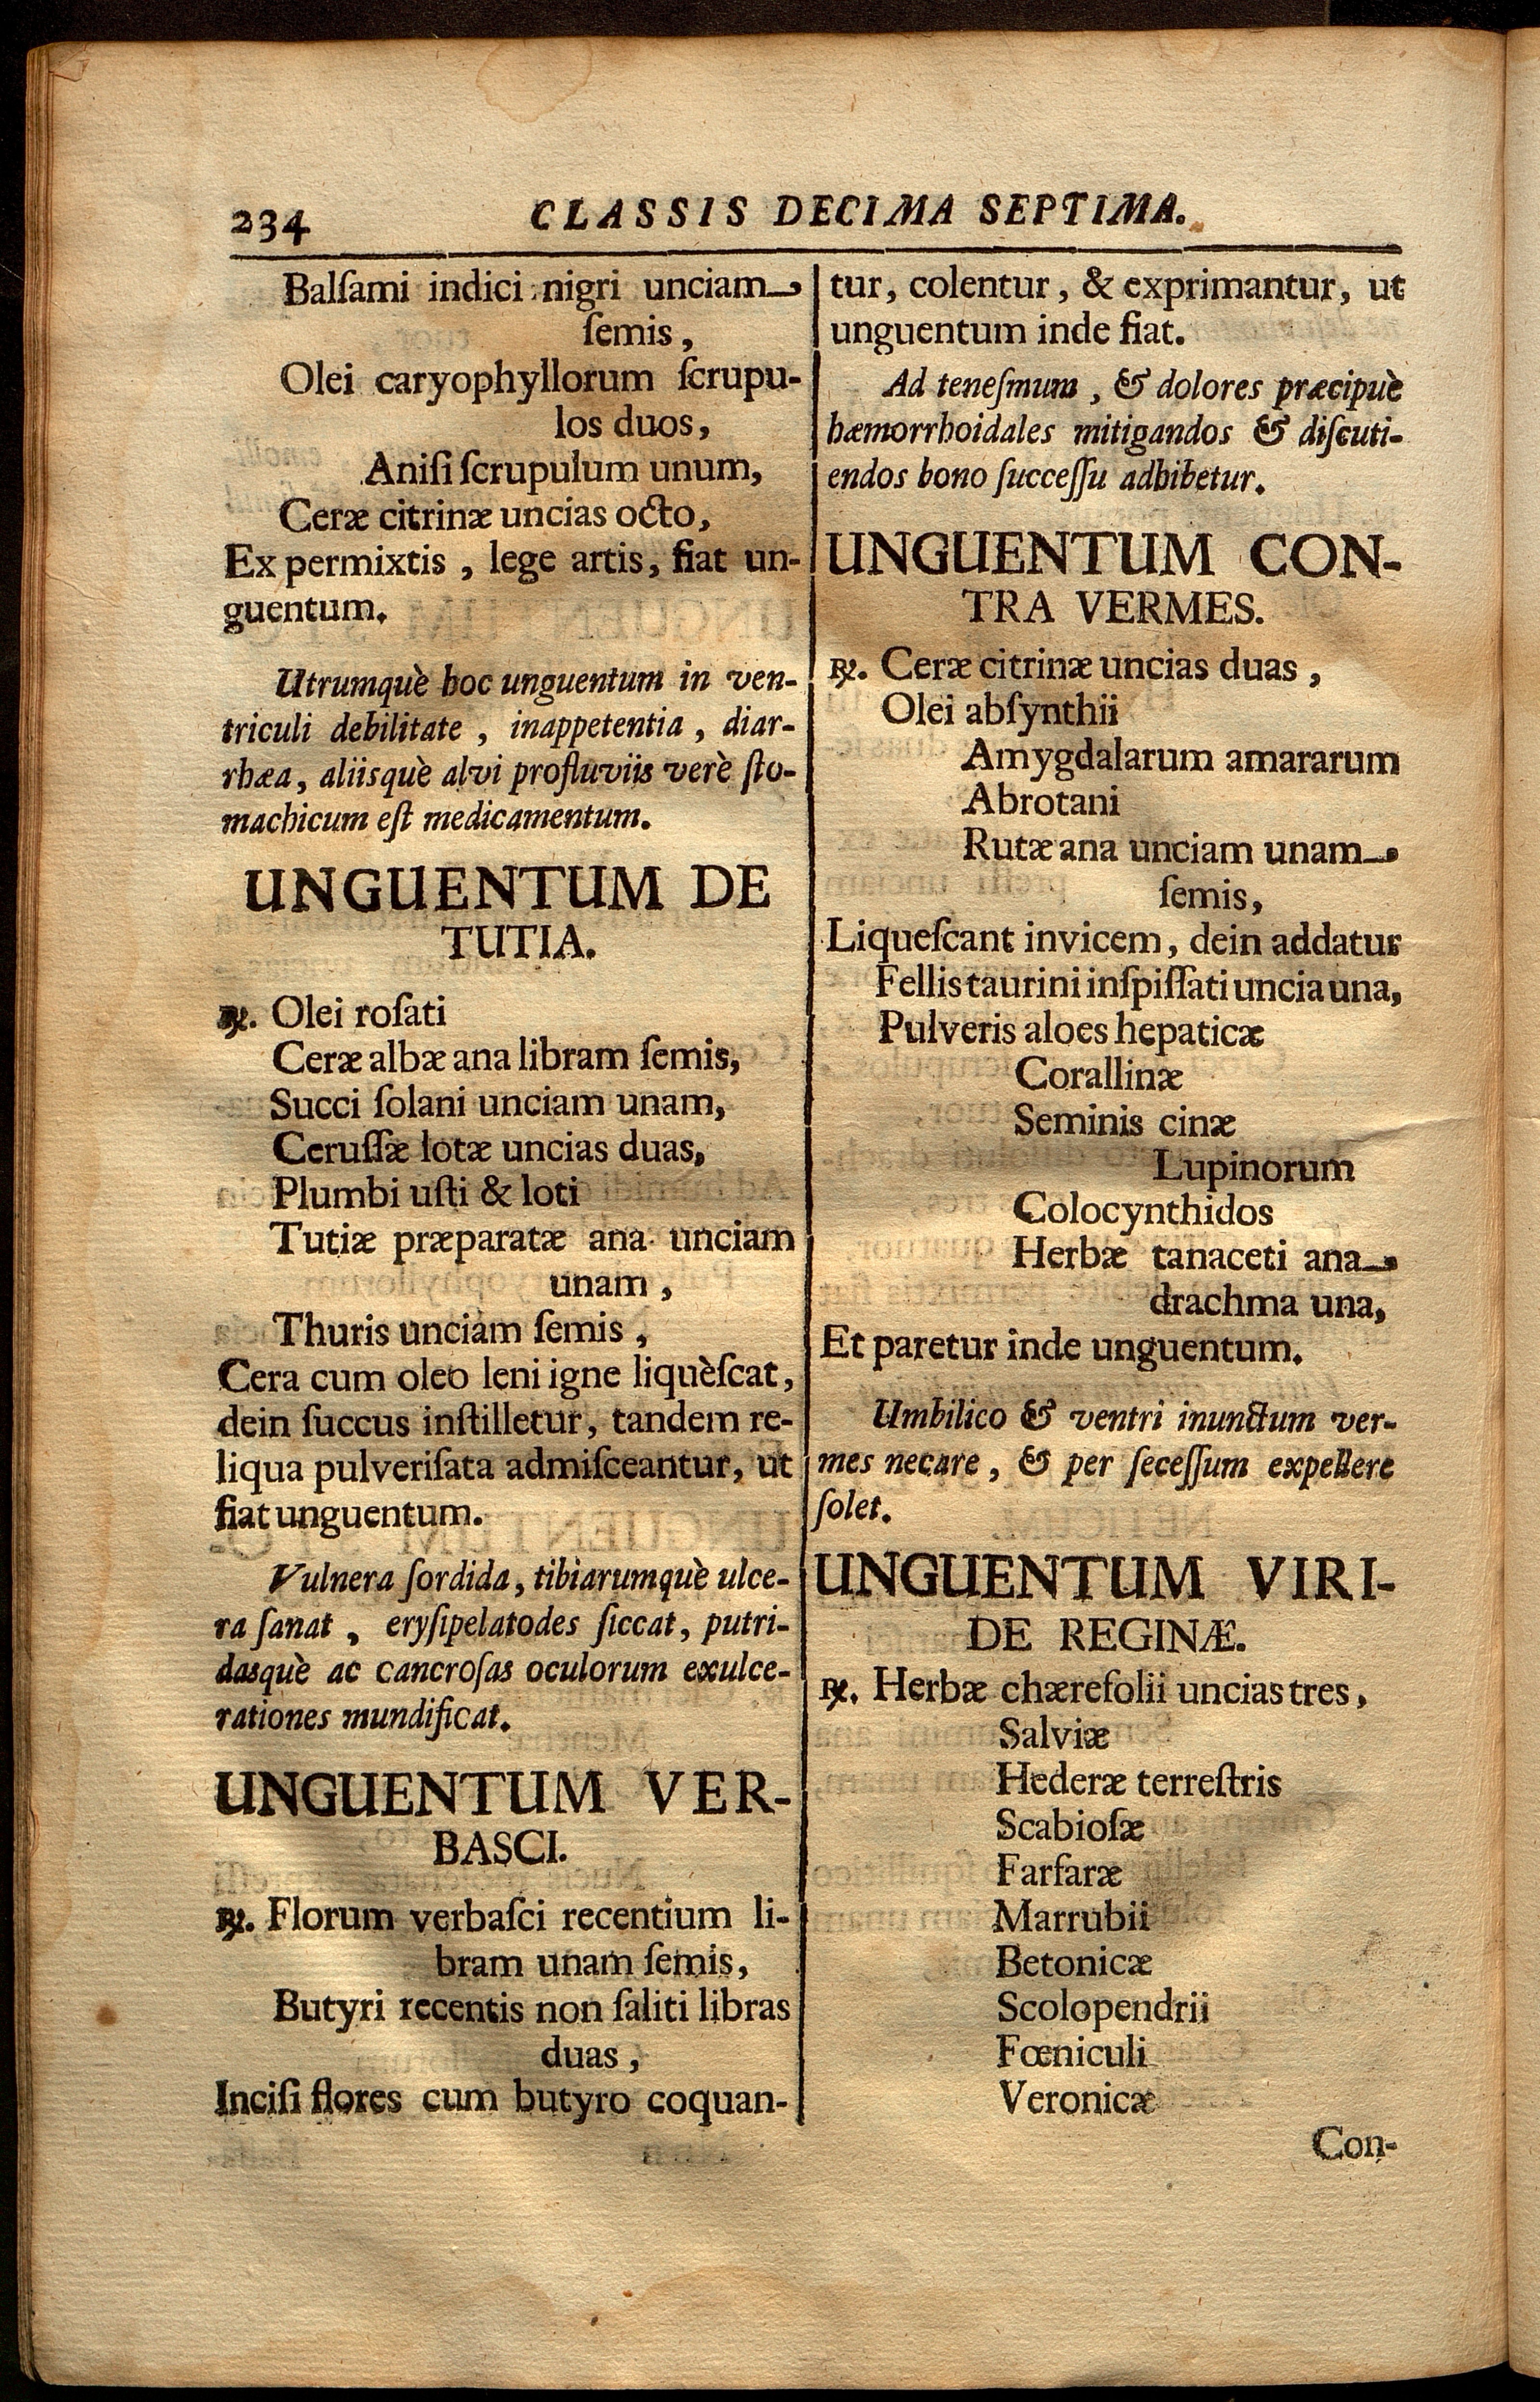 234
CLASSIS DECIMA SEPTIMA.
Balſami indici nigri unciam
ſemis,
Olei caryophyllorum ſcrupu-
los duos,
Aniſi ſcrupulum unum,
Ceræ citrinæ uncias octo,
Ex permixtis, lege artis, fiat un-
guentum.
Utrumquè hoc unguentum in ven-
triculi debilitate, inappetentia, diar-
rhæa, aliisquè alvi profluviis verè ſto-
machicum eſt medicamentum.
UNGUENTUM DE
TUTIA.
℞. Olei roſati
Ceræ albæ ana libram ſemis,
Succi ſolani unciam unam,
Ceruſſæ lotæ uncias duas,
Plumbi uſti & loti
Tutiæ præparatæ ana unciam
unam,
Thuris unciam ſemis,
Cera cum oleo leni igne liquèſcat,
dein ſuccus inſtilletur, tandem re-
liqua pulveriſata admiſceantur, ut
fiat unguentum.
Vulnera ſordida, tibiarumquè ulce-
ra ſanat, eryſipelatodes ſiccat, putri-
dasquè ac cancroſas oculorum exulce-
rationes mundificat.
UNGUENTUM VER-
BASCI.
℞. Florum verbaſci recentium li-
bram unam ſemis,
Butyri recentis non ſaliti libras
duas,
Inciſi flores cum butyro coquan-
tur, colentur, & exprimantur, ut
unguentum inde fiat.
Ad teneſmum, & dolores præcipuè
hæmorrhoidales mitigandos & diſcuti-
endos bono ſucceſſu adhibetur.
UNGUENTUM CON-
TRA VERMES.
℞. Ceræ citrinæ uncias duas,
Olei abſynthii
Amygdalarum amararum
Abrotani
Rutæ ana unciam unam
ſemis,
Liqueſcant invicem, dein addatur
Fellis taurini inſpiſſati uncia una,
Pulveris aloes hepaticæ
Corallinæ
Seminis cinæ
Lupinorum
Colocynthidos
Herbæ tanaceti ana
drachma una,
Et paretur inde unguentum.
Umbilico & ventri inunctum ver-
mes necare, & per ſeceſſum expellere
ſolet.
UNGUENTUM VIRI-
DE REGINÆ.
℞. Herbæ chærefolii uncias tres,
Salviæ
Hederæ terreſtris
Scabioſæ
Farfaræ
Marrubii
Betonicæ
Scolopendrii
Fœniculi
Veronicæ
Con-